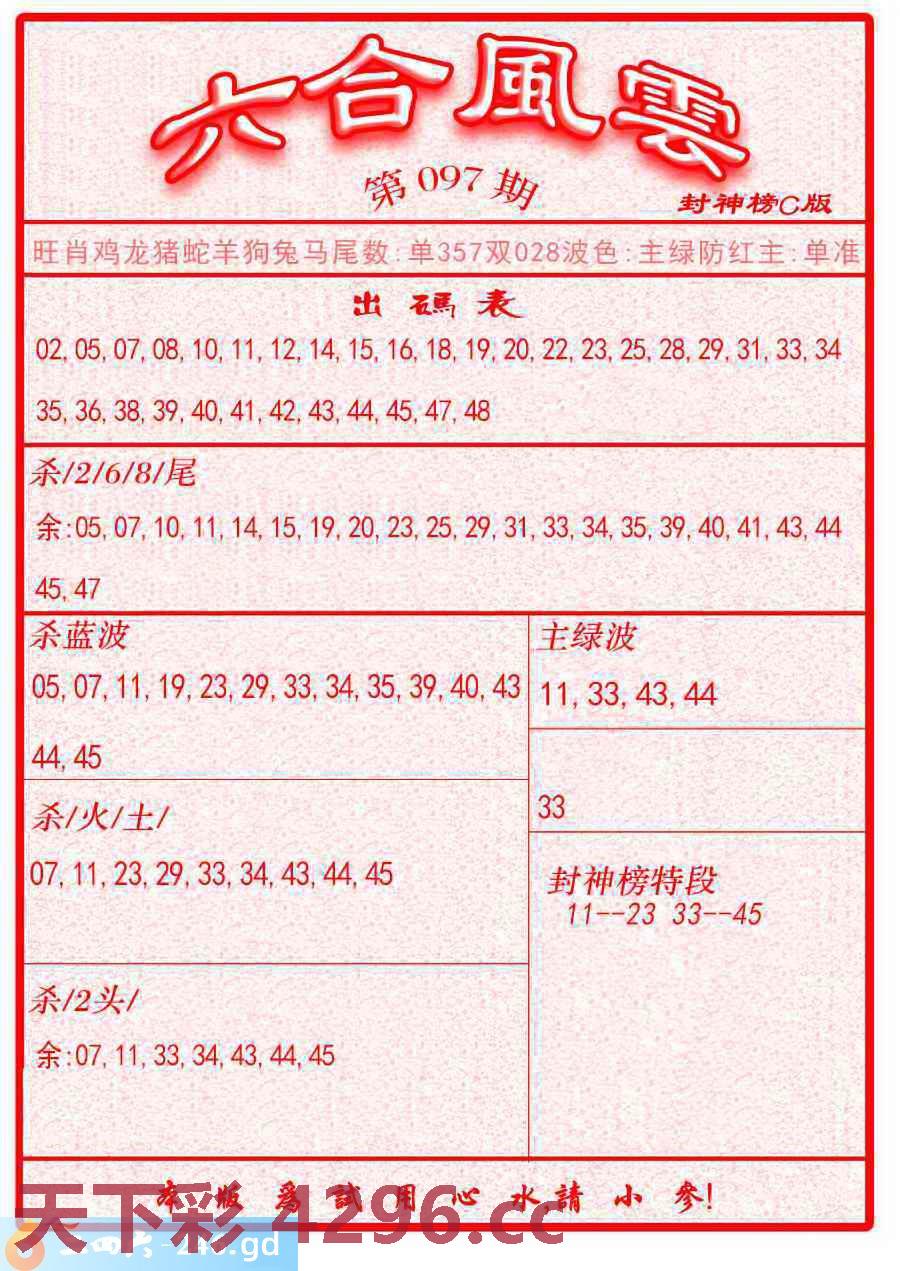 六合風雲
第097期
封神榜C版
旺肖鸡龙猪蛇羊狗兔马尾数:单357双028波色:主绿防红主:单准
出碼表
02,05,07,08,10,11,12,14,15,16,18,19,20,22,23,25,28,29,31,33,34
35,36,38,39,40,41,42,43,44,45,47,48
杀/2/6/8/尾
余:05,07,10,11,14,15,19,20,23,25,29,31,33,34,35,39,40,41,43,44
45,47
杀蓝波
05,07,11,19,23,29,33,34,35,39,40,43
44,45
主绿波
11,33,43,44
33
杀/火/土/
07,11,23,29,33,34,43,44,45
封神榜特段
11--23 33--45
杀/2头/
余:07,11,33,34,43,44,45
本版爲試用心水,請小参!
天下彩 4296.cc